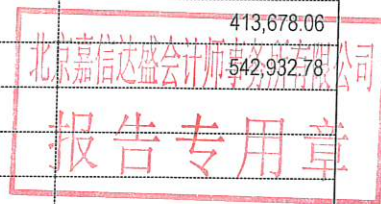 413,678.06
北京嘉信达盛会计师事务所有限公司
542,932.78
报告专用章